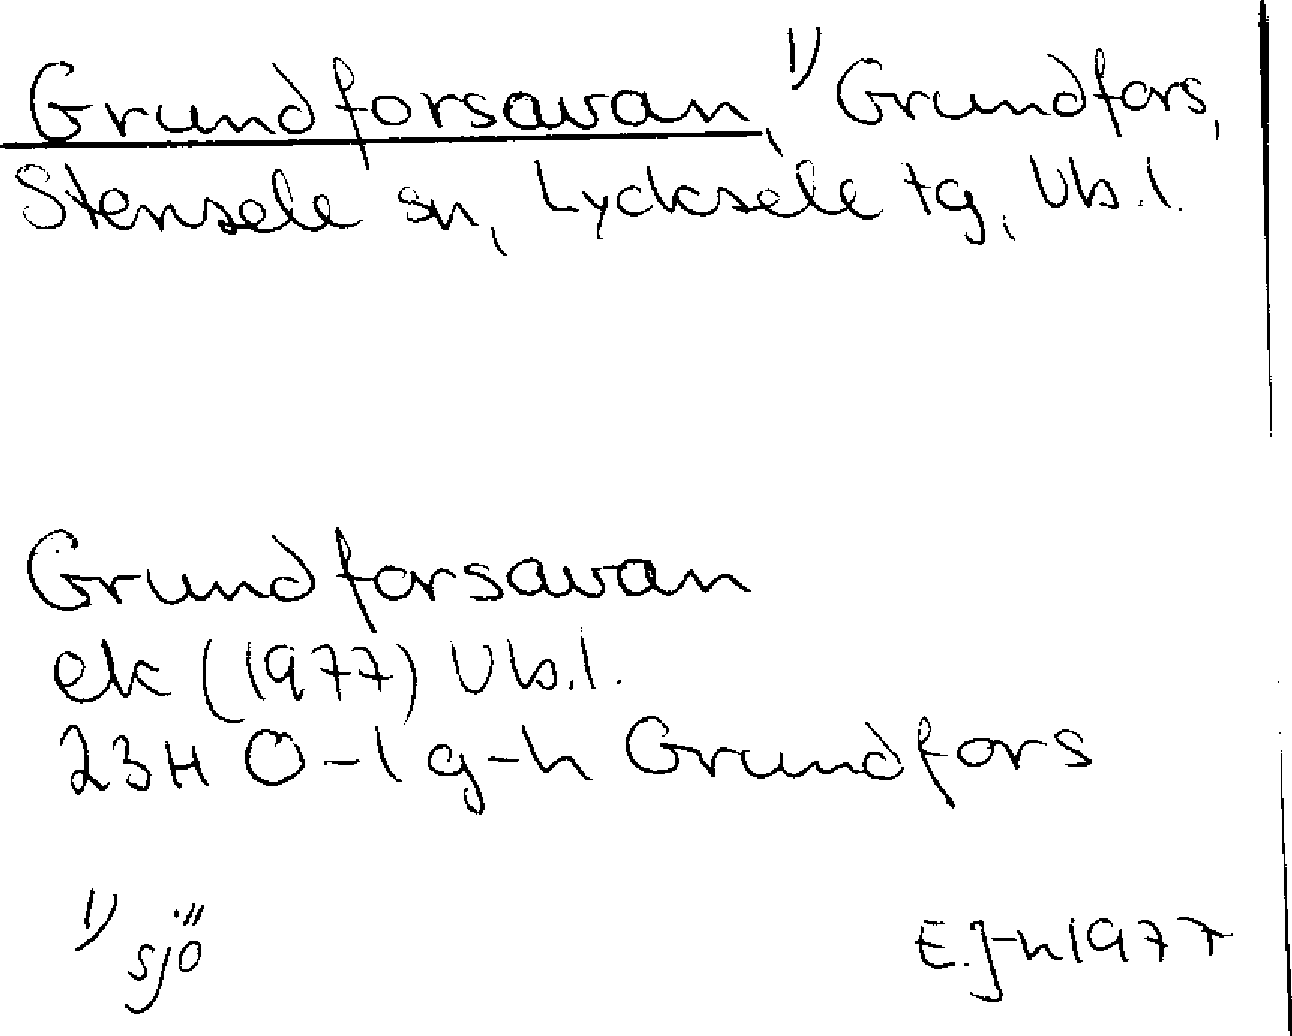 Grundforsavan, 1) Grundfors,
Stensele sn, Lycksele tg, Vb.l.
Grundforsavan
ek (1977) Vb.l.
23H 0-1 g-h Grundfors
1) sjö
E.J-n 1977